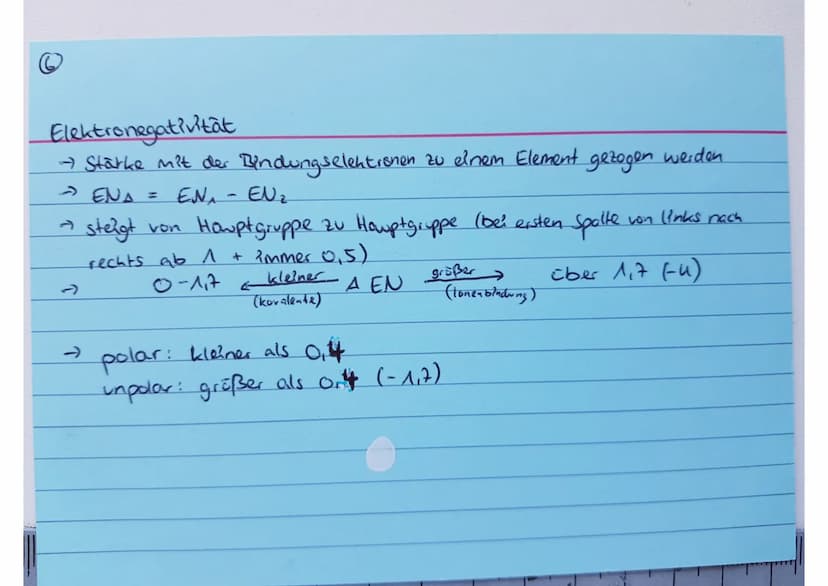 6
Elektronegativität
→ Stärke mit der Bindungselektronen zu einem Element gezogen werden
→ EN∆ = EN₁ - EN₂
→ steigt von Hauptgruppe zu Hauptgruppe (bei ersten Spalte von links nach
rechts ab 1 + immer 0,5)
→ 0-1,7 ← kleiner (kovalente) ∆ EN größer → (Ionenbindung) über 1,7 (-4)
→ polar: kleiner als 0,4
unpolar: größer als 0,4 (-1,7)